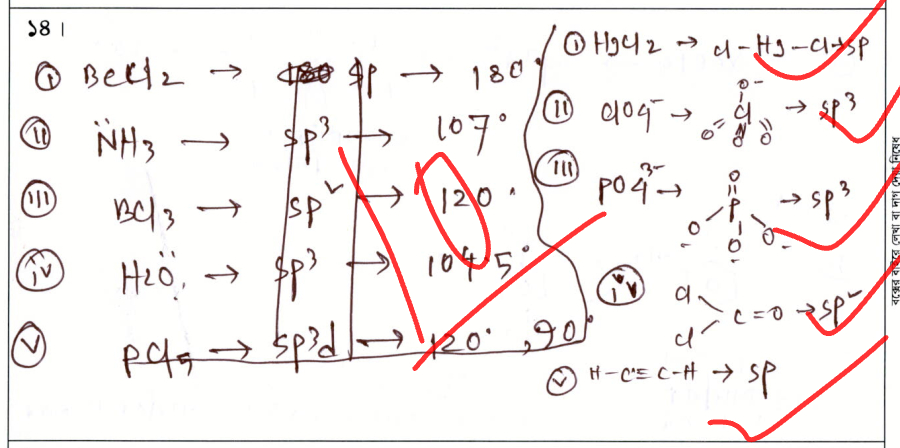 ১৪।
(i) BeCl2 → sp → 180°
(ii) N̈H3 → sp³ → 107°
(iii) BCl3 → sp² → 120°
(iv) H2Ö: → sp³ → 104.5°
(v) PCl5 → sp³d → 120°, 90°
(i) HgCl2 → Cl-Hg-Cl → sp
(ii) ClO4⁻ → O⁻ Cl O O O → sp³
(iii) PO4³⁻ → O P O⁻ O⁻ O⁻ → sp³
(iv) Cl Cl C=O → sp²
(v) H-C≡C-H → sp
বক্সের বাইরে লেখা বা দাগ দেয়া নিষেধ